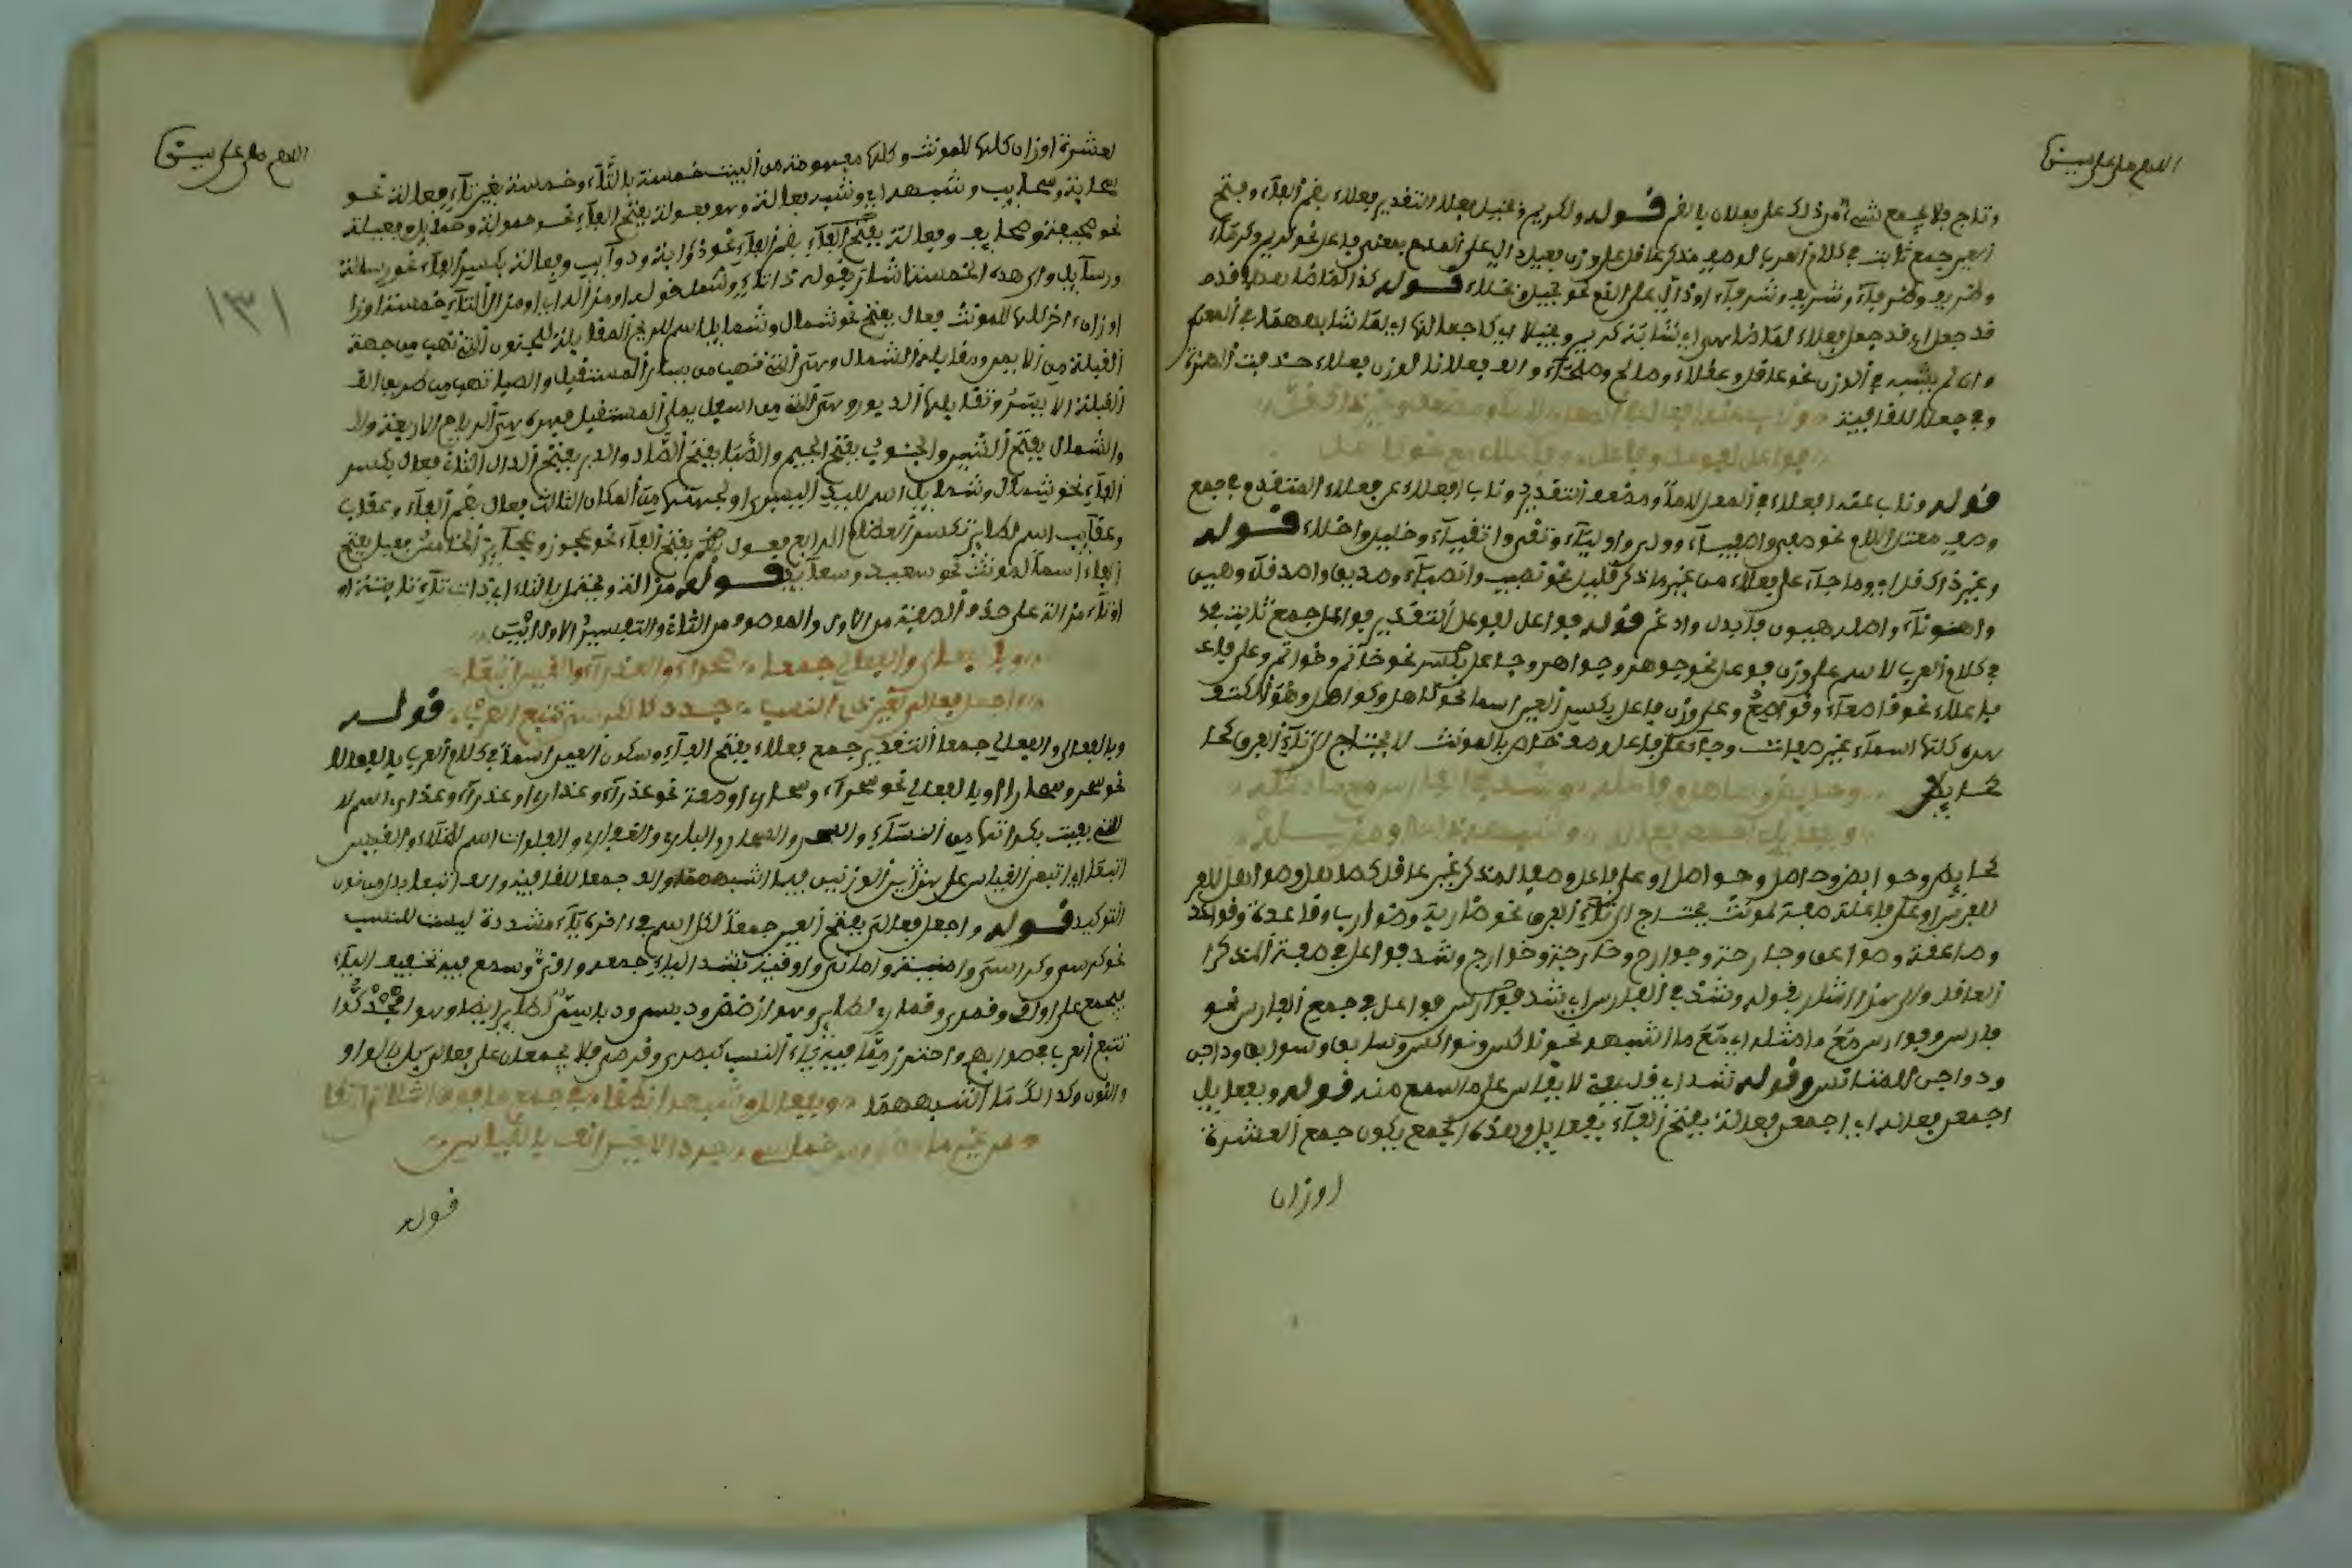 اللهم صل على سيدنا
وتاج فلا يجمع شيء من ذلك على فعلان بالضم قوله ولكريم وبخيل فعلا التقدير فعلاء بضم الفاء وفتح
العين جمع ثابت في كلام العرب لوصف مذكر عاقل على وزن فعيل دال على المدح بمعنى فاعل نحو كريم وكرماء
وظريف وظرفاء وشريف وشرفاء او دال على الذم نحو بخيل وبخلاء قوله كذا لما ضاهاهما قد
قد جعل اي قد جعل فعلاء لما ضاهى اي شابه كريم وبخيلا اي كما جعل لهما اي لما شابههما في المعنى
وان لم يشبه في الوزن نحو عاقل وعقلاء وصالح وصلحاء والف فعلا لوزن فعلاء حذفت الهمزة
وفي جعلا للقافية وناب عنه افعلاء في المعل لاما ومضعف وغير ذاك قل
فواعل لفوعل وفاعل وفاعلاء مع نحو كاهل
قوله وناب عنه افعلاء في المعل لاما ومضعف التقدير وناب افعلاء عن فعلاء المتقدم في جمع
وصف معتل اللام نحو صفي واصفياء وولي واولياء وتقي واتقياء وخليل واخلاء قوله
وغير ذاك قل اي وما جاء على فعلاء من غير ما ذكر قليل نحو نصيب وانصباء وصديق واصدقاء وهين
واهوناء واصله هيون فابدل وادغم قوله فواعل لفوعل التقدير فواعل جمع ثابت
في كلام العرب لاسم على وزن فوعل نحو جوهر وجواهر وفاعل نحو خاتم وخواتم وعلى فا
فاعلاء نحو قاصعاء وقواصع وعلى وزن فاعل بكسر العين اسما نحو كاهل وكواهل وهو الكتف
هذه كلها اسماء غير صفات وجاء على فاعل وصف خاص بالمونث لا يحتاج الى تاء الفرق كحا
كحايض
وحايض وصاهل وفاعله وشذ في الفارس مع ما ماثله
وبفعايل اجمعن فعاله وشبهه ذا تاء او مزاله
كحايض وحوايض وحامل وحوامل او على فاعل وصفا لمذكر غير عاقل كصاهل وصواهل
للفرس او على فاعلة صفة لمونث يحتاج الى تاء الفرق نحو ضاربة وضوارب وقاعدة وقواعد
وصاعقة وصواعق وجارحة وجوارح وخارجة وخوارج وشذ فواعل في صفة المذكر
العاقل والى هذا اشار بقوله وشذ في الفارس اي شذ فوارس فواعل في جمع الفارس نحو
فارس وفوارس مع ما مثله اي مع ما اشبهه نحو ناكس ونواكس وسابق وسوابق وداجن
ودواجن للمناس وقوله شذ اي قليلة لا يقاس على ما سمع منه قوله وبفعايل
اجمعن فعاله اي اجمعن فعالة بفتح الفاء بفعايل وهذا الجمع يكون جمع العشرة
اوزان
اللهم صل على سيدنا
١٣١
لعشرة اوزان كلها للمونث وكلها مفهومة من البيت خمسة بالتاء وخمسة بغير تاء فعالة نحو
سحابة وسحايب وشبهه اي وشبه فعالة وهو فعولة بفتح الفاء نحو حمولة وحمايل وفعيلة
نحو صحيفة وصحايف وفعالة بضم الفاء نحو ذوابة وذوايب وفعالة بكسر الفاء نحو رسالة
ورسايل والى هذه الخمسة اشار بقوله ذا تاء وشمل قوله او مزاله اي او مزال التاء خمسة اوزا
اوزان اخر كلها للمونث فعال بفتح نحو شمال وشمايل اسم للريح المقابلة للجنوب التي تهب من جهة
القبلة من الايمن ومقابلة الشمال وهي التي تهب من يسار المستقبل والصبا تهب من
القبلة الايسر وتقابلها الدبور وهي التي من اسفل يمنى المستقبل فهذه هي الرياح الاربعة ولا
والشمال بفتح الشين والجنوب بفتح الجيم والصبا بفتح الصاد والدبر بفتح الدال الثاني فعال بكسر
الفاء نحو شمال وشمايل اسم لليد اليسرى او لجهتها من المكان الثالث فعال بضم الفاء وعقاب
وعقايب اسم لطاير تكسر العظام الرابع فعول بفتح الفاء نحو عجوز وعجايز الخامس فعيل بفتح
الفاء اسما لمونث نحو سعيد وسعايد قوله مزاله ويحتمل بالتاء اي ذات تاء ثابتة او
او تاء مزالة على حذف الصفة من الاول والموصوف من الثاني والتفسير الاول ابين
وبالفعالي والفعالى جمعا صحراء والعذراء والقيس اتبعا
واجعل فعالي لغير ذي النسب جدد كالكرسي تتبع العرب قوله
وبالفعالى والفعالي جمعا التقدير جمع فعلاء بفتح الفاء وسكون العين اسما في كلام العرب بالفعالا
نحو صحر وصحارا او بالفعالي نحو صحراء وصحاري او صفة نحو عذراء وعذاري او عذراء وعذارى اسم لا
للتي بقيت بكرانتها من النساء والصحر والصحار والبلدي والقفار والفلوات اسم للخلاء والقيس
اتبعا اي اتبعن القياس على هذين الوزنين فيما اشبههما والف جمعا للقافية والف اتبعا بدل من نون
التوكيد قوله واجعل فعالي بفتح العين جمعا لكل اسم في اخره ياء مشددة ليست للنسب
نحو كرسي وكراسي وامنية واماني واوقية بشد الياء جمعه واقي وسمع فيه تخفيف الياء
فيجمع على اواق وقمري وقماري لطاير وهو ازضض ودبسي ودباسي لطاير ايضا وهو
تتبع العرب في صوابهم واحترز مما فيه ياء النسب كبصري وقرصي فلا يجمعان على فعالي بل بالواو
والنون وكذالك ما اشبههما وبفعالل وشبهه انطقا في جمع ما فوق الثلاثة ارتقا
من غير ما مضى ومن خماسي جرد الاخر انف بالقياس
قوله